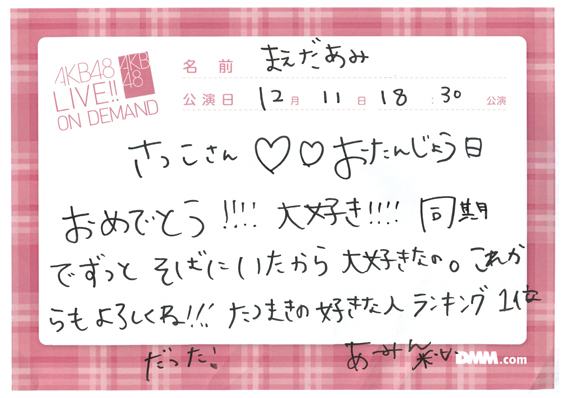 AKB48
LIVE!!
ON DEMAND
AKB
48
名前 まえだあみ
公演日 12月 11日 18:30 公演
さっこさん♡♡おたんじょう日
おめでとう!!!! 大好き!!!! 同期
でずっと そばにいたから 大好きなの。これか
らもよろしくね!!! たつまきの好きな人ランキング 1位
だった!
あーみん
DMM.com